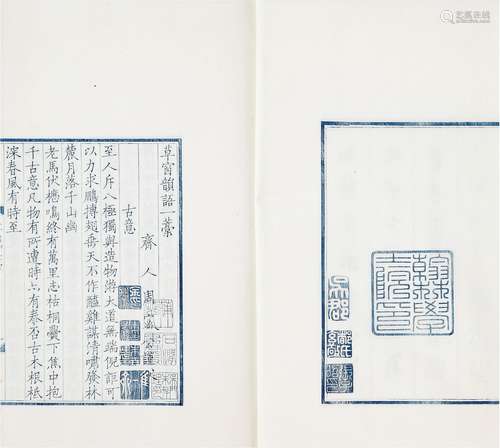 吳郡
草窗韻語一藁
齊人周
古意
至人斥八極獨與造物游大道無端倪詎可
以力求鵬搏起垂天不作醯雞謀清嘯廣林
麓月落千山幽
老馬伏櫪鳴終有萬里志枯桐爨下焦中抱
千古意凡物有所遭時亦有泰否古木根柢
深春風有時至